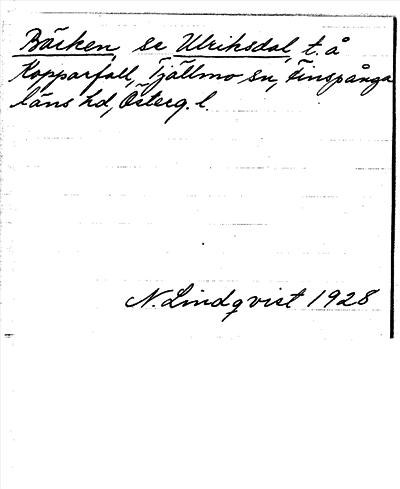 Bäcken, se Ulriksdal, t. å
Kopparfall, Tjällmo sn, Finspånga
läns hd, Österg. l.
N. Lindqvist 1928